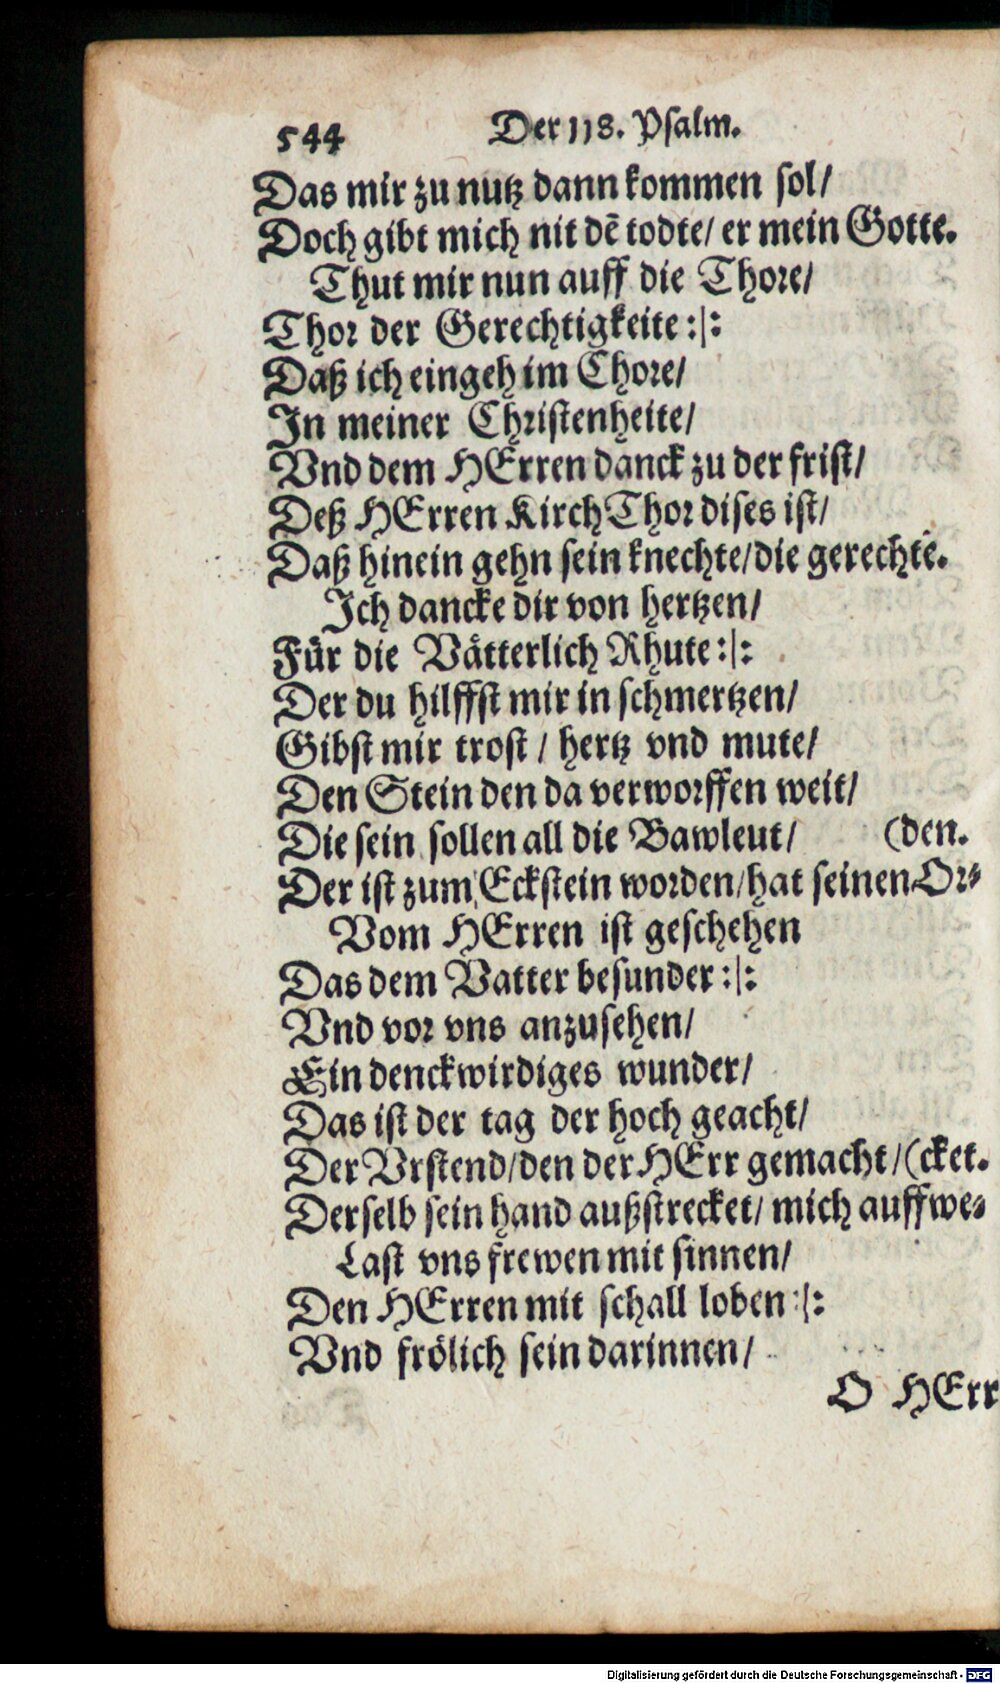 544 Der 118. Psalm.
Das mir zu nutz dann kommen sol/
Doch gibt mich nit dē todte/ er mein Gotte.
Thut mir nun auff die Thore/
Thor der Gerechtigkeite :|:
Daß ich eingeh im Chore/
In meiner Christenheite/
Vnd dem HErren danck zu der frist/
Deß HErren Kirch Thor dises ist/
Daß hinein gehn sein knechte/die gerechte.
Ich dancke dir von hertzen/
Für die Vätterlich Rhute :|:
Der du hilffst mir in schmertzen/
Gibst mir trost / hertz vnd mute/
Den Stein den da verworffen weit/
Die sein sollen all die Bawleut/ (den.
Der ist zum Eckstein worden/hat seinen Or-
Vom HErren ist geschehen
Das dem Vatter besunder :|:
Vnd vor vns anzusehen/
Ein denckwirdiges wunder/
Das ist der tag der hoch geacht/
Der Vrstend/den der HErr gemacht/(cket.
Derselb sein hand außstrecket/ mich auffwe-
Last vns frewen mit sinnen/
Den HErren mit schall loben :|:
Vnd frölich sein darinnen/
O HErr
Digitalisierung gefördert durch die Deutsche Forschungsgemeinschaft - DFG